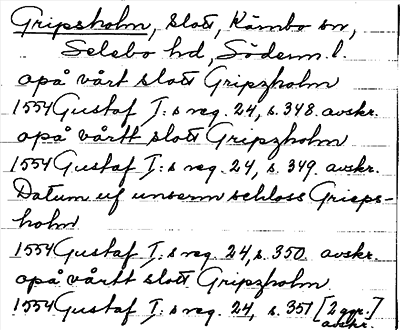 Gripsholm, slott, Kärnbo sn,
Selebo hd, Söderm. l.
opå vårt slott Gripzholm
1554 Gustaf I:s reg. 24, s. 348. avskr.
opå vårtt slott Gripzholm
1554 Gustaf I:s reg. 24, s. 349. avskr.
Datum uf unserm schloss Grieps-
holm
1554 Gustaf I:s reg. 24, s. 350 avskr.
opå vårtt slott Gripzholm.
1554 Gustaf I:s reg. 24, s. 351 [2 ggr.]
avskr.